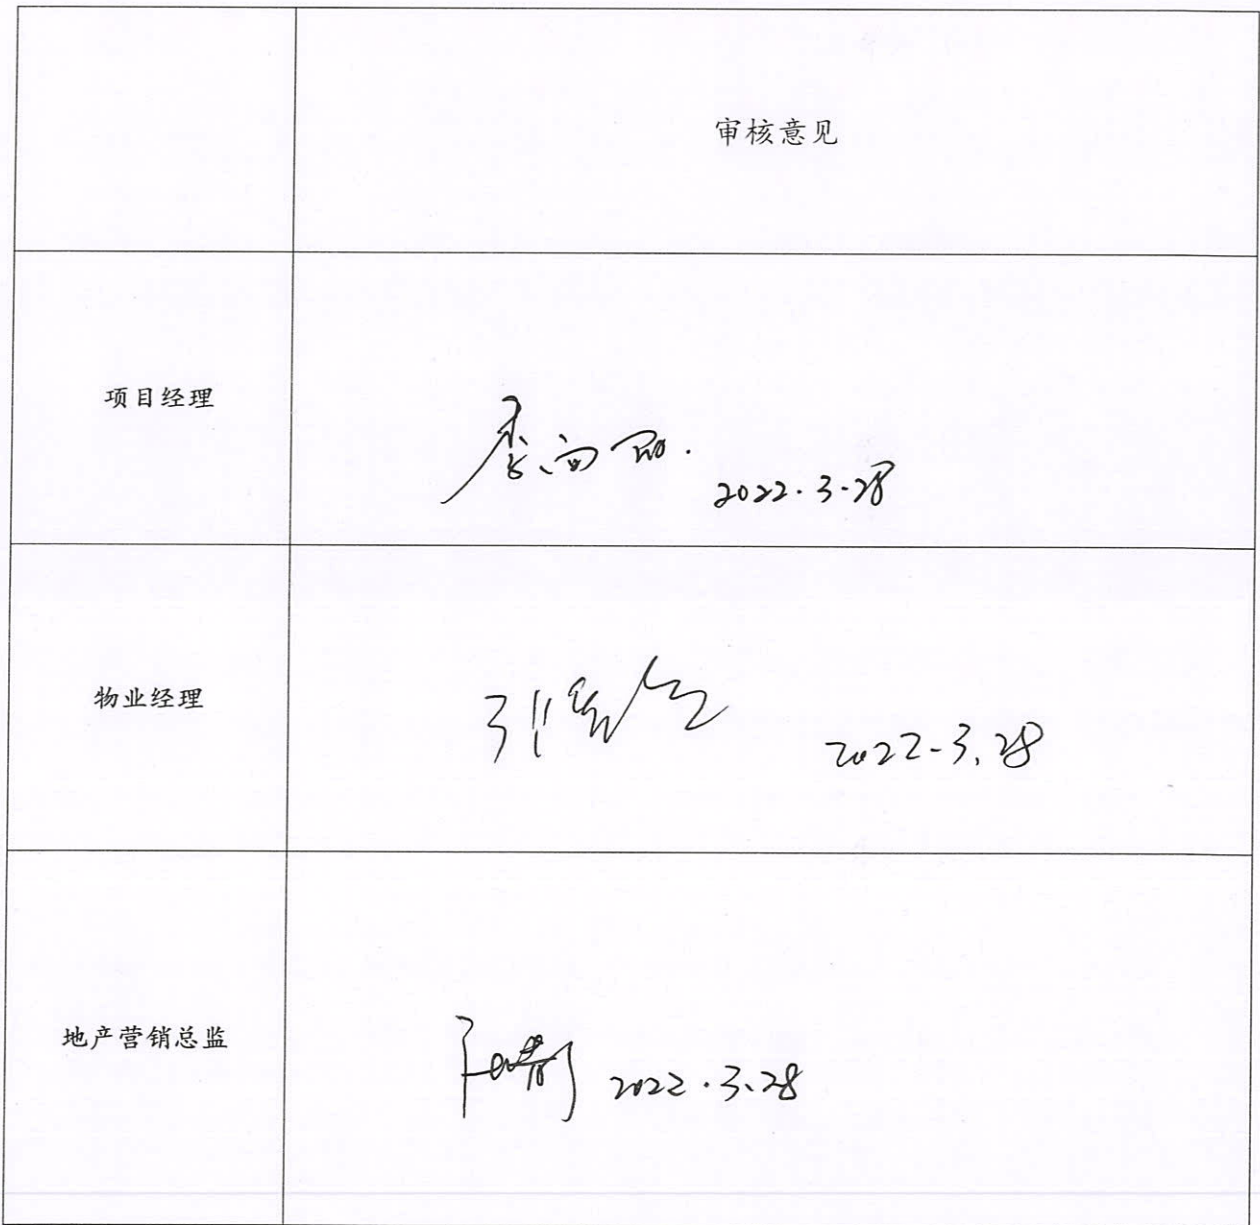 审核意见
项目经理
2022.3.28
物业经理
2022.3.28
地产营销总监
2022.3.28